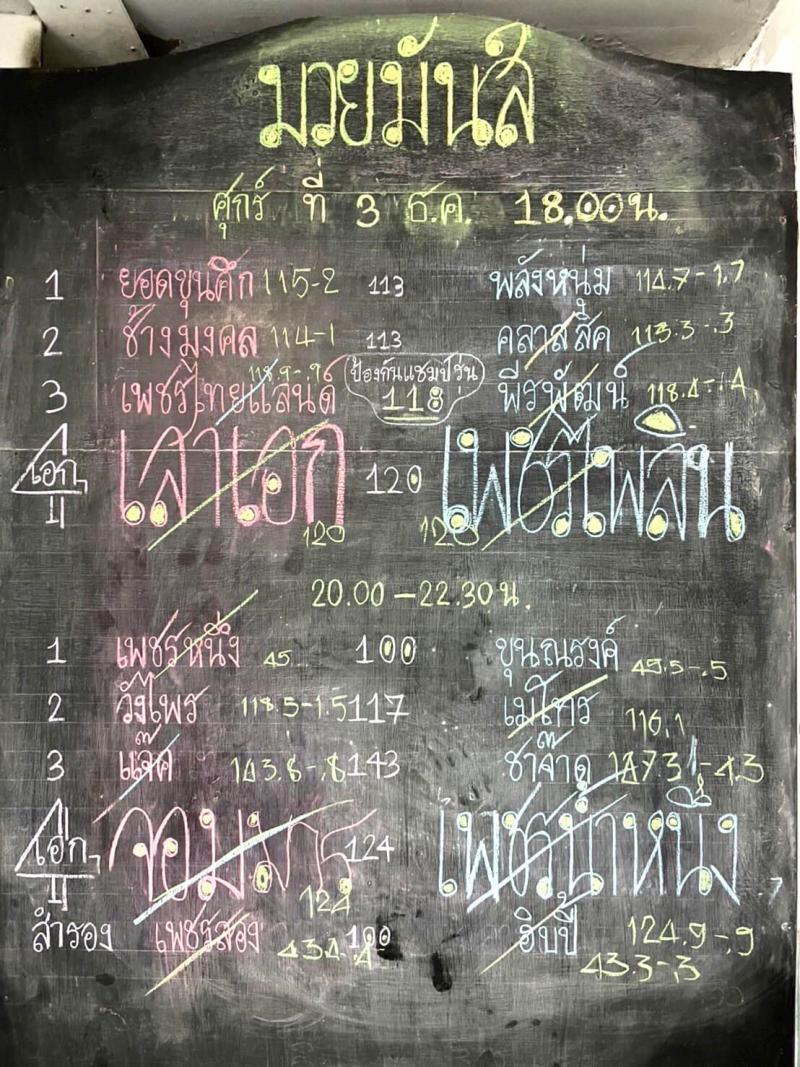 มวยมันส์
ศุกร์ ที่ 3 ธ.ค. 18.00น.
1 ยอดขุนศึก 115-2 113 พลังหนุ่ม 114.7-1.7
2 ช้างมงคล 114-1 113 คลาสสิค 113.3-.3
3 เพชรไทยแลนด์ 118.9-.9 ป้องกันแชมป์รุ่น 118 พีรพัฒน์ 118.4-.4
เอก เสาเอก 120 120 เพชรเพลิน 120
20.00-22.30น.
1 เพชรหนึ่ง 45 100 ขุนณรงค์ 45.5-.5
2 วังไพร 118.5-1.5 117 เมโทร 116.1
3 แจ๊ค 143.8-.8 143 ซาจ๊าดู 147.3-4.3
เอก จอมมาร 124 124 เพชรน้ำหนึ่ง 124.9-.9
สำรอง เพชรสอง 43.4-.4 100 ฮิบปี้ 43.3-.3